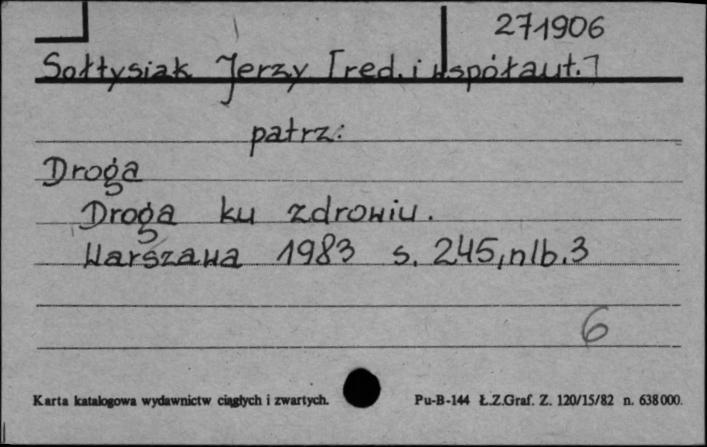 271906
Sołtysiak Jerzy [red. i współaut.]
patrz:
Droga
Droga ku zdrowiu.
Warszawa 1983 s. 245, nlb. 3
6
Karta katalogowa wydawnictw ciągłych i zwartych. Pu-B-144 Ł.Z.Graf. Z. 120/15/82 n. 638000.